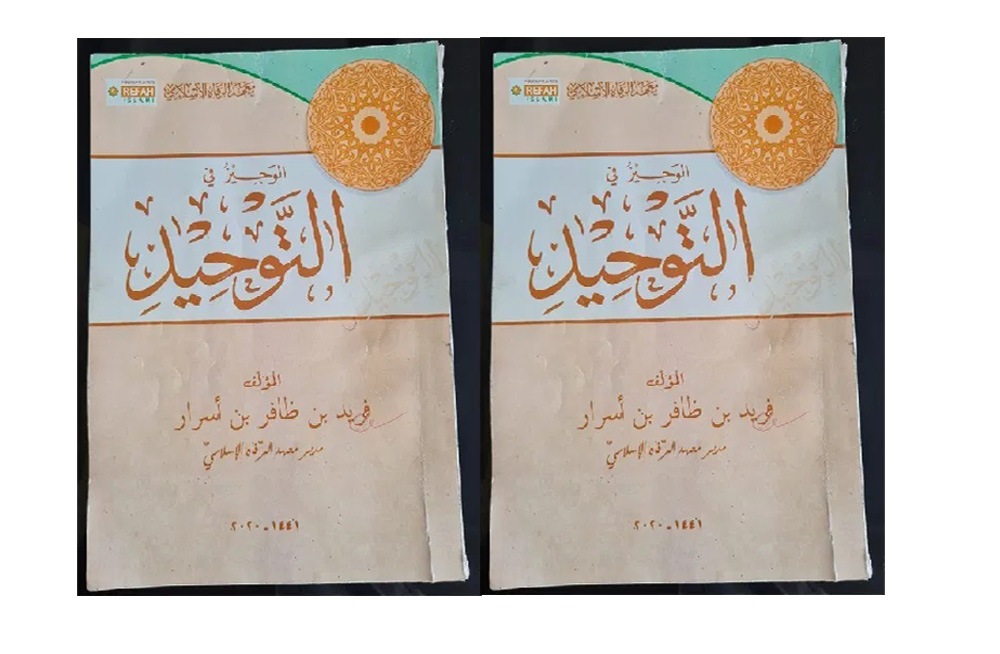 REFAH
ISLAMI
معهد الرفاه الإسلامي
الوجيز في
التوحيد
المؤلف
فريد بن ظافر بن أسرار
مدير معهد الرفاه الإسلامي
١٤٤١ - ٢٠٢٠
REFAH
ISLAMI
معهد الرفاه الإسلامي
الوجيز في
التوحيد
المؤلف
فريد بن ظافر بن أسرار
مدير معهد الرفاه الإسلامي
١٤٤١ - ٢٠٢٠